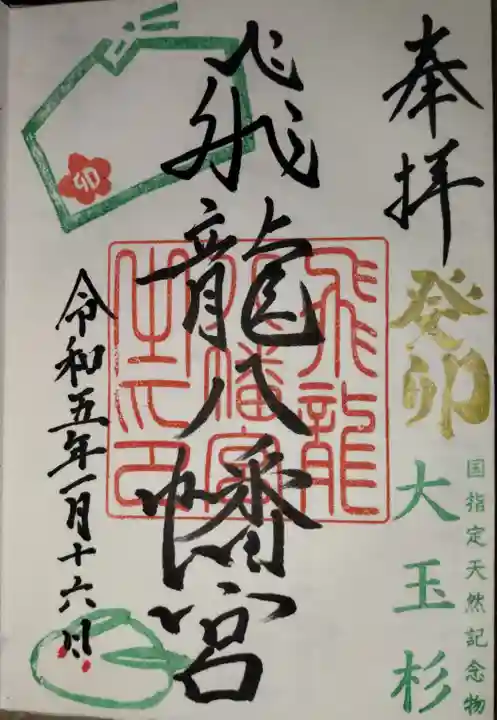 奉拝
癸卯
国指定天然記念物
大玉杉
飛龍八幡宮
飛龍
八幡宮
之印
令和五年一月十六日
卯